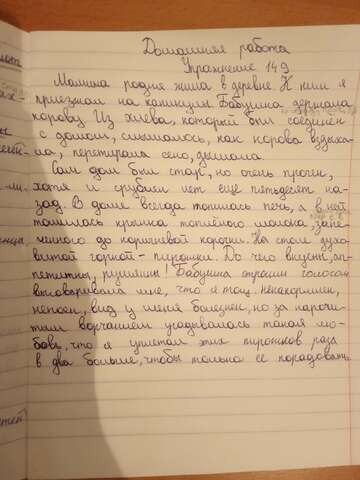 Домашняя работа
Упражнение 149
Мамина родня жила в деревне. К ним я
приезжал на каникулы. Бабушка держала
корову. Из хлева, который был соединён
с домом, слышалось, как корова вздыха-
ла, перетирала сено, дышала.
Сам дом был стар, но очень прочен,
хотя и срублен лет ещё пятьдесят на-
зад. В доме всегда топилась печь, а в ней
томилась крынка топлёного молока, запе-
чённого до коричневой корочки. На столе духо-
витой горкой - пирожки. До чего вкусны, ап-
петитны, румяны! Бабушка строгим голосом
выговаривала мне, что я тощ, ненакормлен,
непоен, вид у меня болезнен, но за нарочи-
тым ворчанием угадывалась такая лю-
бовь, что я уплетал этих пирожков раза
в два больше, чтобы только её порадовать